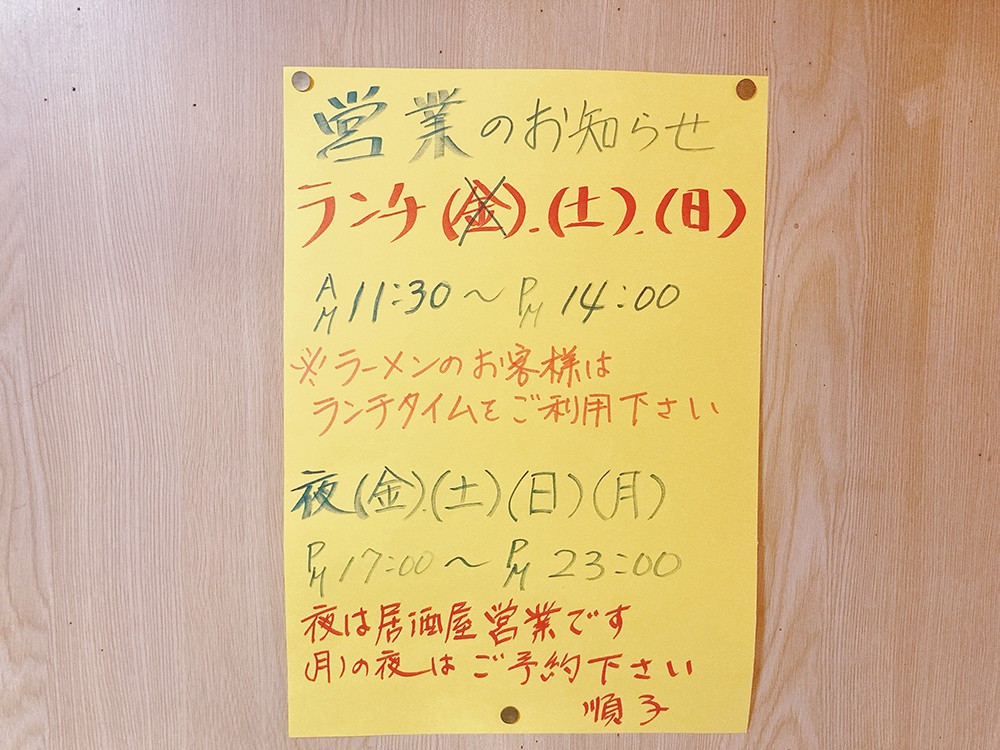 営業のお知らせ
ランチ(金).(土).(日)
AM 11:30〜PM 14:00
※ラーメンのお客様は
ランチタイムをご利用下さい
夜(金).(土)(日)(月)
PM 17:00〜PM 23:00
夜は居酒屋営業です
(月)の夜はご予約下さい
順子